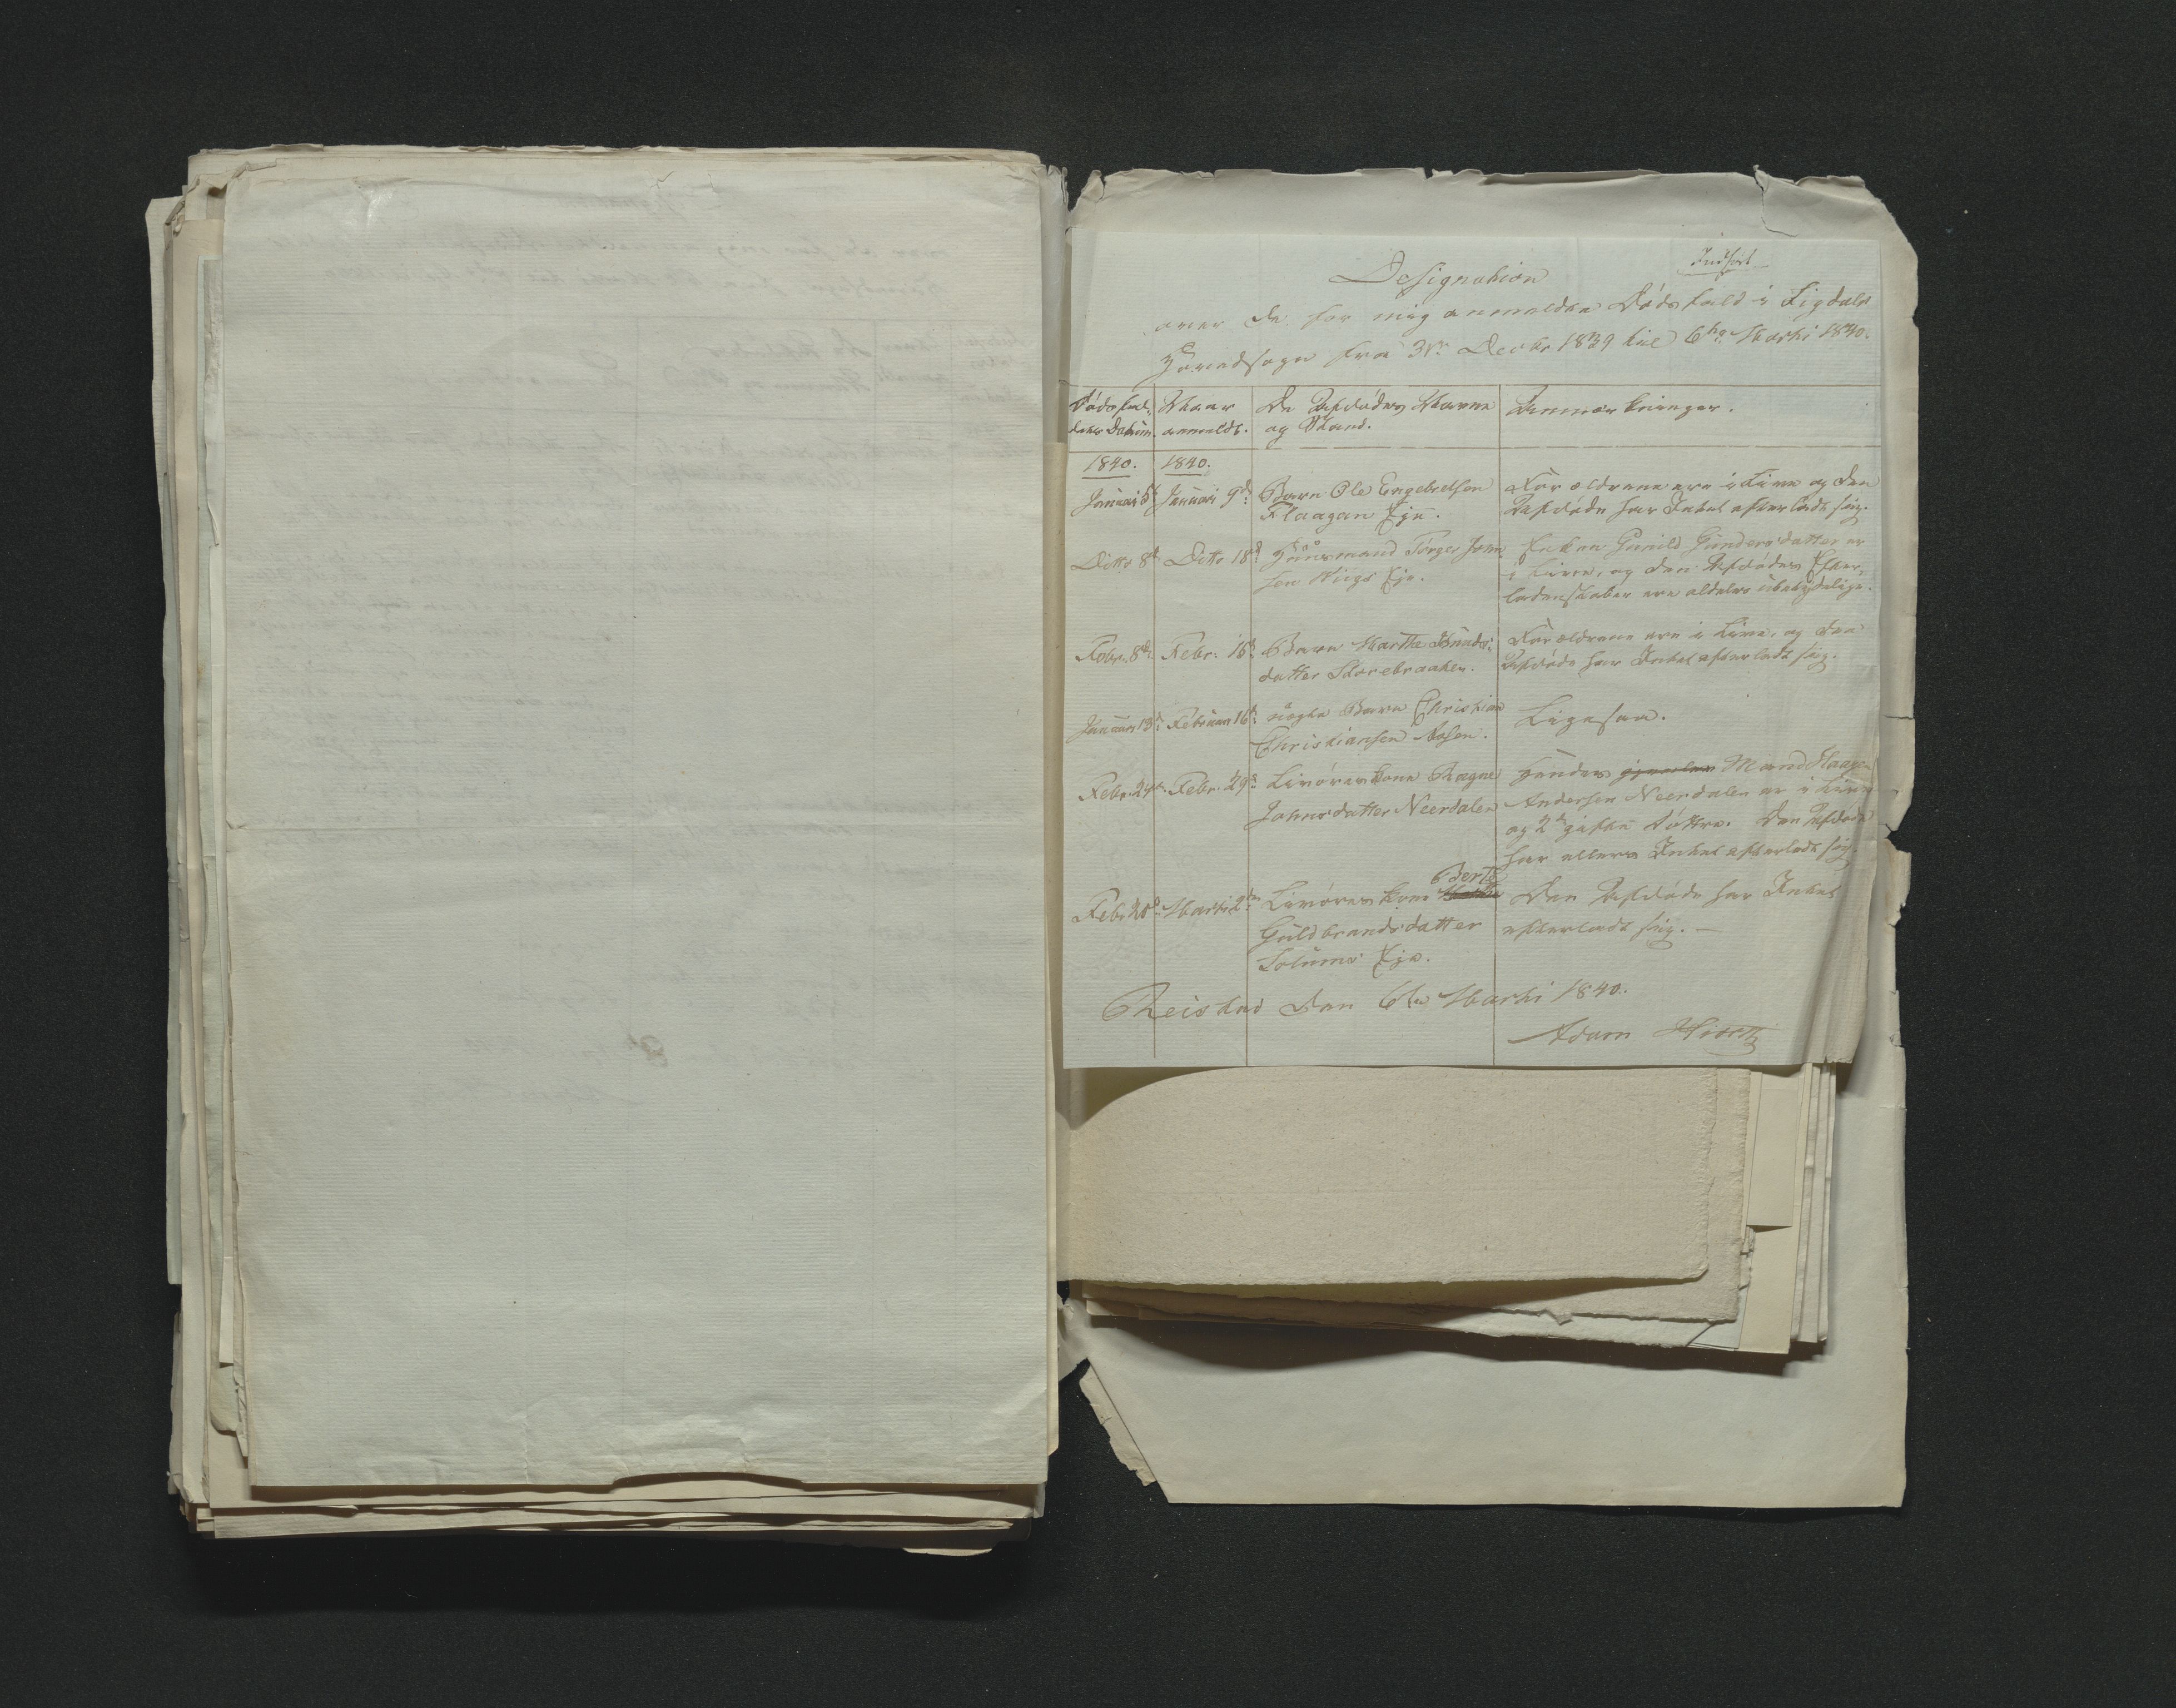 Indført
Designation
over de for mig anmeldte Dødsfald i Sigdals
Hovedsogn fra 31te Decbr 1839 til 6te Martii 1840.
Dødsfal-
dets Datum.
Naar
anmeldt.
De Afdødes Navne
og Stand.
Anmærkninger.
1840. 1840.
Januari Januari 9de Barn Ole Engebretsen
Flaagan Eje.
Forældrene ere i Live og den
Afdøde har Intet efterladt sig.
Ditto 8de Ditto 18de Huusmand Torger John
sen Wiigs Eje.
Enken Gunild Gundersdatter er
i Live, og den Afdødes Efter-
ladenskaber ere aldeles ubetydelige.
Febr. 8de Febr. 16de Barn Marthe Knuds-
datter Storebraaten.
Forældrene ere i Live, og den
Afdøde har Intet efterladt sig.
Januari 13de Februari 16de uægte Barn Christian
Christiansen Aasen.
Ligesaa.
Febr. Febr. 29de Livøreskone Ragne
Johnsdatter Neerdalen
hendes Mand Haagen
Andersen Neerdalen er i Live
og 2de gifte Døttre. Den Afdøde
har ellers Intet efterladt sig.
Febr. Martii 2den Livøreskone Berthe
Guldbrandsdatter
Solums Eje.
Den Afdøde har Intet
efterladt sig. —
Reistad den 6te Martii 1840.
Adam Hiorth